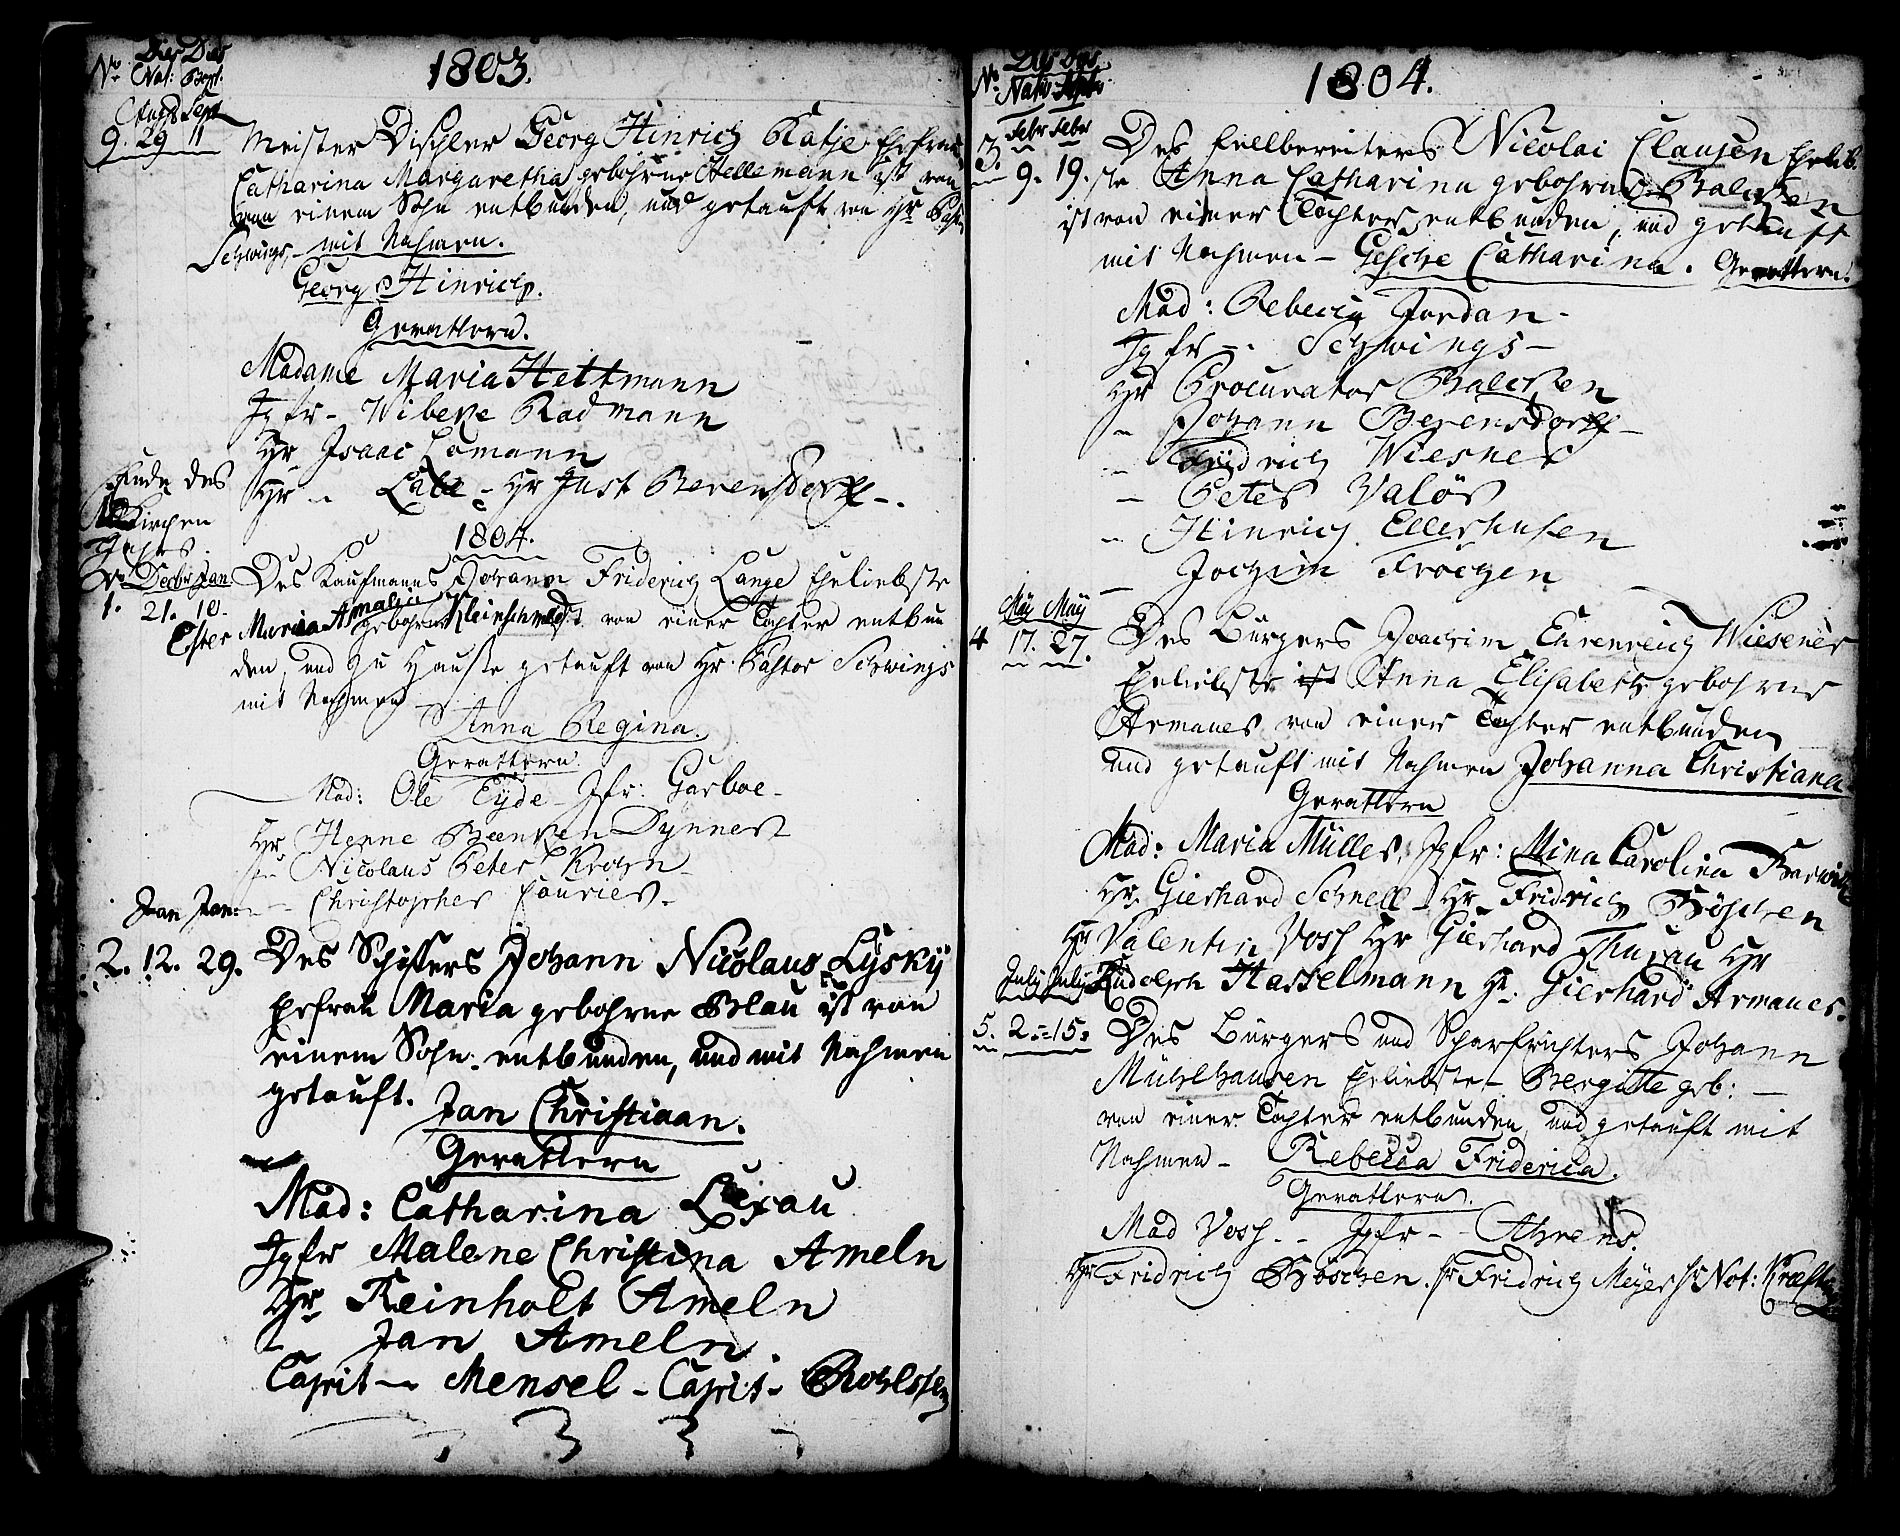 1803.
No Dies Dies
Nat: Bapt.
Aug. Sept.
9. 29 11 Meister Dischler Georg Hinrich Katje Ehefrau
Catharina Margaretha gebohrne Hellemann ist von
von einem Sohn entbunden, und getauft von Hr Past.
Schwings, mit Nahmen.
Georg Hinrich.
Gevattern.
Madame Maria Hettmann
Jgfr - Wibeke Radmann
Hr Isaac Lomann
Hr - Labe - Hr Just Berensdorff -.
Ende des
Kirchen
Jahrs.
1804.
No Decbr Jan.
1. 21. 10. Des Kaufmanns Johann Friderich Lange Eheliebste
Ester Maria Amalia gebohrne Kleinschmidt von einer Tochter entbun
den, und zu Hauße getauft von Hr. Pastor Schwings
mit Nahmen -
Anna Regina.
Gevattern
Mad: Ole Eyde - Jfr: Garboe -
Hr Henne Beenken Dynnest
- Nicolaus Peter Krohn -
- Christopher Fouries.
Jan Jan:
2. 12. 29. Des Schiffers Johann Nicolaus Lysky
Ehefrau Maria gebohrne Blau ist von
einem Sohn entbunden, und mit Nahmen
getauft. Jan Christiaan.
Gevattern
Mad: Catharina Lexau
Jgfr Malene Christina Ameln
Hr Reinholt Ameln
- Jan Ameln.
Capit - Mensel - Capit - Bohlssen
1804.
No Dies Dies
Nativ Bapt.
Febr Febr
3. 9. 19. Des Fellbereiters Nicolai Clausen Ehelib
ste Anna Catharina gebohrne Balchen
ist von einer Tochter entbunden, und getauft
mit Nahmen - Gesche Catharina. Gevattern.
Mad: Rebecca Jordan -
Jgfr - Schwings -
Hr Procurator Balchen
- Johann Berensdorff -
- Fridrich Wiesner
- Peter Valör
- Hinrich Ellerhusen
- Jochim Frochen
May May
4 17. 27. Des Bürgers Joachim Ehrenreich Wiesener
Eheliebste ist Anna Elisabeth gebohrne
Armanes von einer Tochter entbunden
und getauft mit Nahmen Johanna Christiana
Gevattern
Mad: Maria Müller, Jgfr: Mina Carolina
Hr. Gierhard Schnell - Hr Fridrich Böschen
Hr Valentin Vosh Hr Gierhard Thurau Hr
Rudolph Hasselmann Hr. Gierhard Armanes.
July July
5. 2. 15. Des Bürgers und Scharfrichters Johann
Mühlhausen Eheliebste - Bergitte geb: -
von einer Tochter entbunden, und getauft mit
Nahmen - Rebecca Friderica.
Gevattern.
Mad Vosh - Jgfr - Ahrens.
Hr Fridrich Böschen. Hr Fridrich Meyer Hr Not: